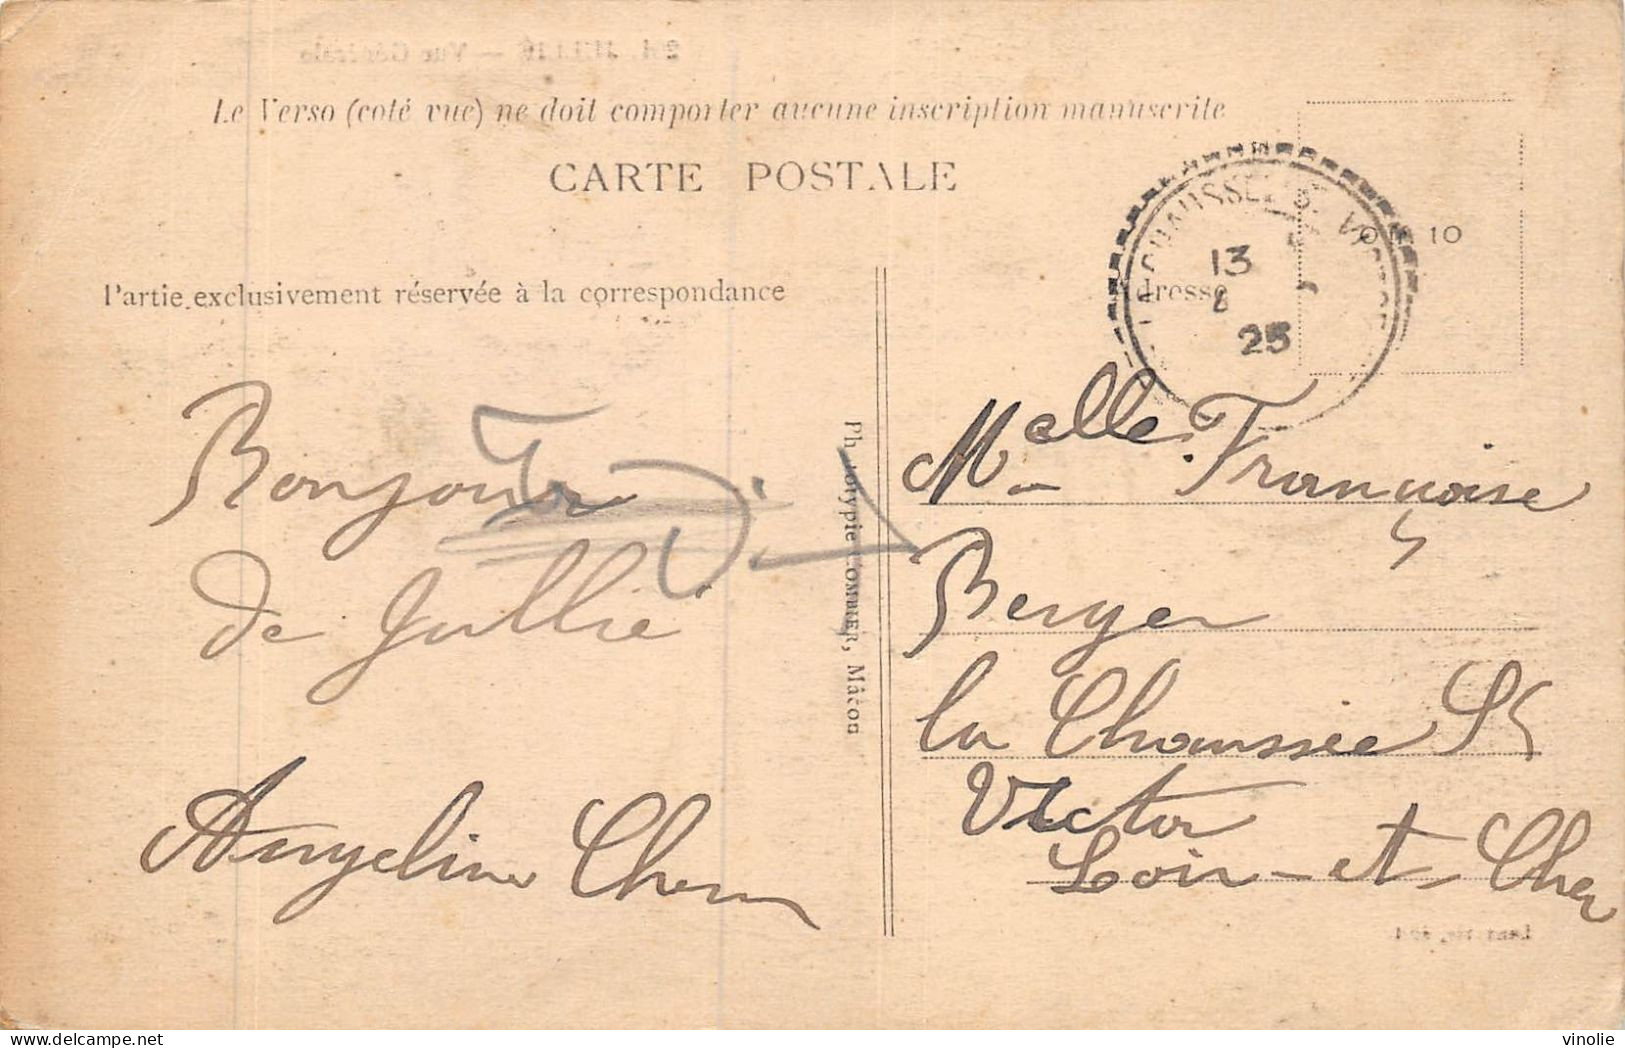 Le Verso (coté vue) ne doit comporter aucune inscription manuscrite
CARTE POSTALE
Partie exclusivement réservée à la correspondance
Adresse
10
LA CHAUSSEE ST VICTOR
13
8
25
Bonjour
de Jullié
Angeline
Phototypie COMBIER, Mâcon
Melle Françoise
Berger
la Chaussée St
Victor
Loir-et-Cher
vinolie